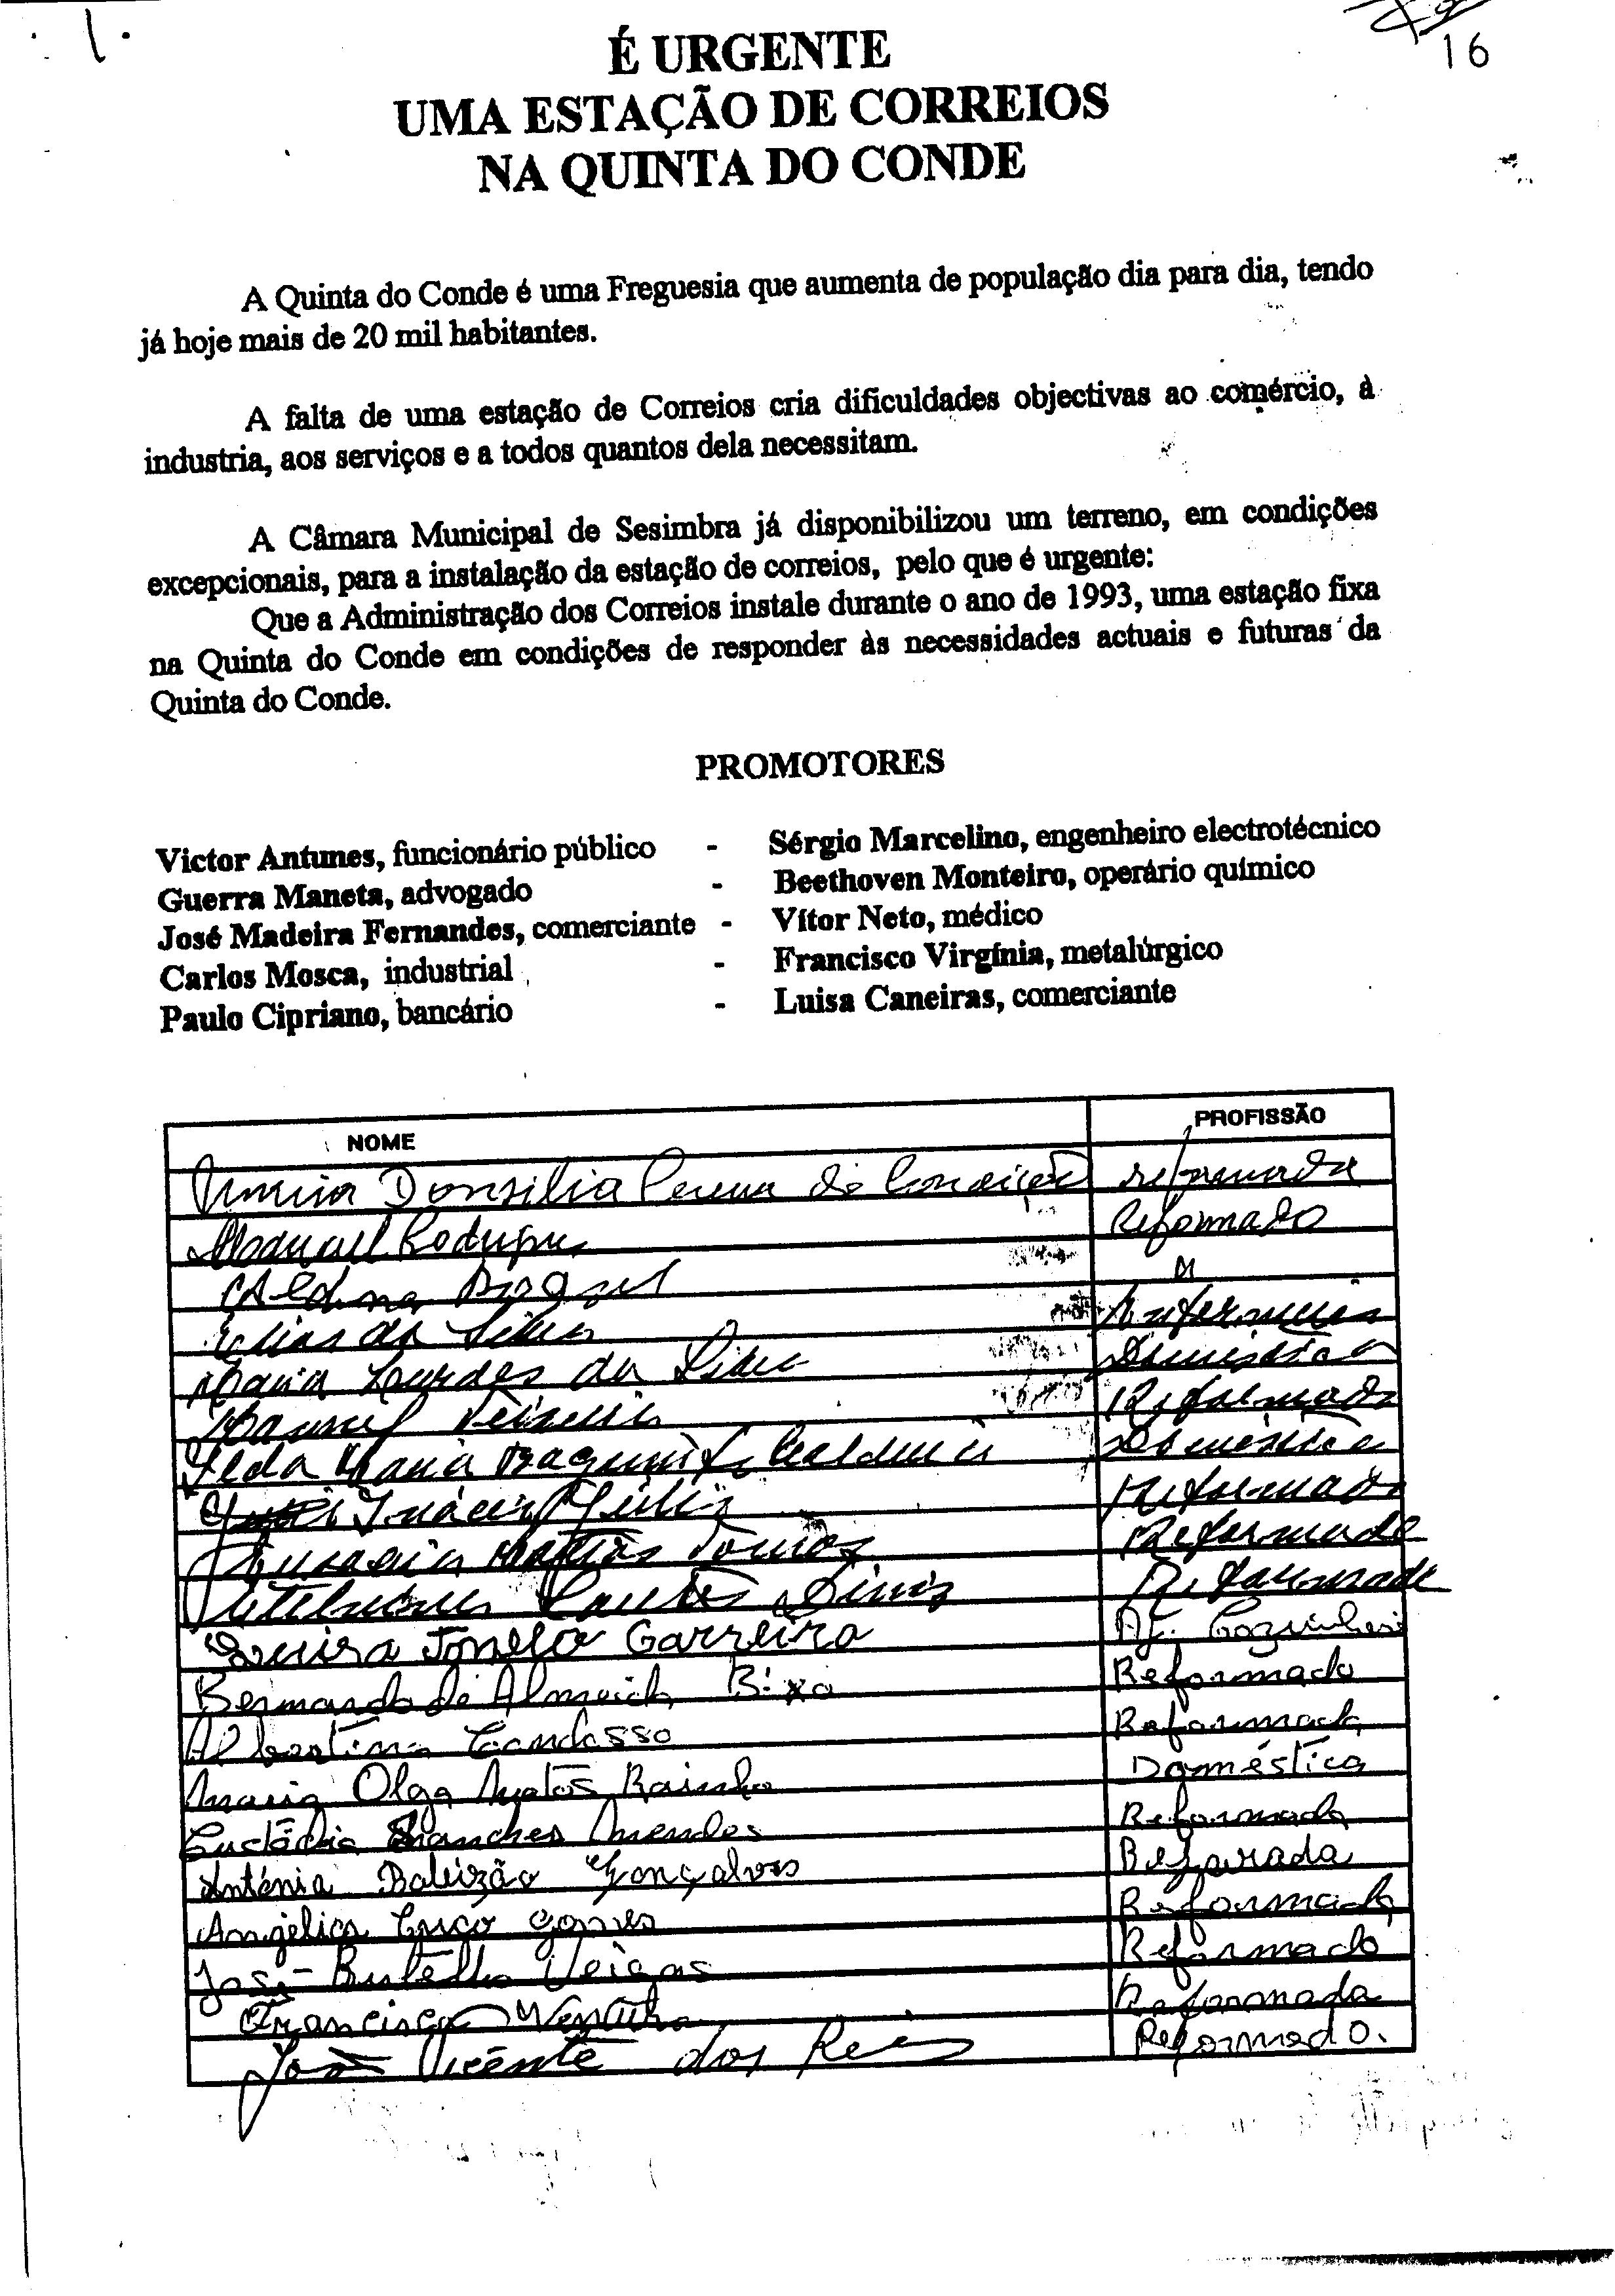 16
É URGENTE
UMA ESTAÇÃO DE CORREIOS
NA QUINTA DO CONDE
A Quinta do Conde é uma Freguesia que aumenta de população dia para dia, tendo
já hoje mais de 20 mil habitantes.
A falta de uma estação de Correios cria dificuldades objectivas ao comércio, à
industria, aos serviços e a todos quantos dela necessitam.
A Câmara Municipal de Sesimbra já disponibilizou um terreno, em condições
excepcionais, para a instalação da estação de correios, pelo que é urgente:
Que a Administração dos Correios instale durante o ano de 1993, uma estação fixa
na Quinta do Conde em condições de responder às necessidades actuais e futuras da
Quinta do Conde.
PROMOTORES
Victor Antunes, funcionário público - Sérgio Marcelino, engenheiro electrotécnico
Guerra Maneta, advogado - Beethoven Monteiro, operário químico
José Madeira Fernandes, comerciante - Vítor Neto, médico
Carlos Mosca, industrial - Francisco Virgínia, metalúrgico
Paulo Cipriano, bancário - Luisa Caneiras, comerciante
NOME PROFISSÃO
Donsilia Pereira da Conceição reformada
Manuel Rodrigues Reformado
Elias da Silva
Maria Lourdes da Silva Domestica
Manuel Teixeira Reformado
Ilda Maria Domestica
Inácio Reformado
Matias Tomas Reformado
Reformado
Garreira Aj. Cozinheira
Bernardo de Almeida Bixo Reformado
Albertina Reformada
Maria Olga Matos Rainha Doméstica
Eustádia Branches Mendes Reformada
Antónia Baleizão Gonçalves Beforada
Angélica Gomes Reformada
José Butelho Veigas Reformado
Francisca Ventura Reformada
João Vicente dos Reis Reformado.